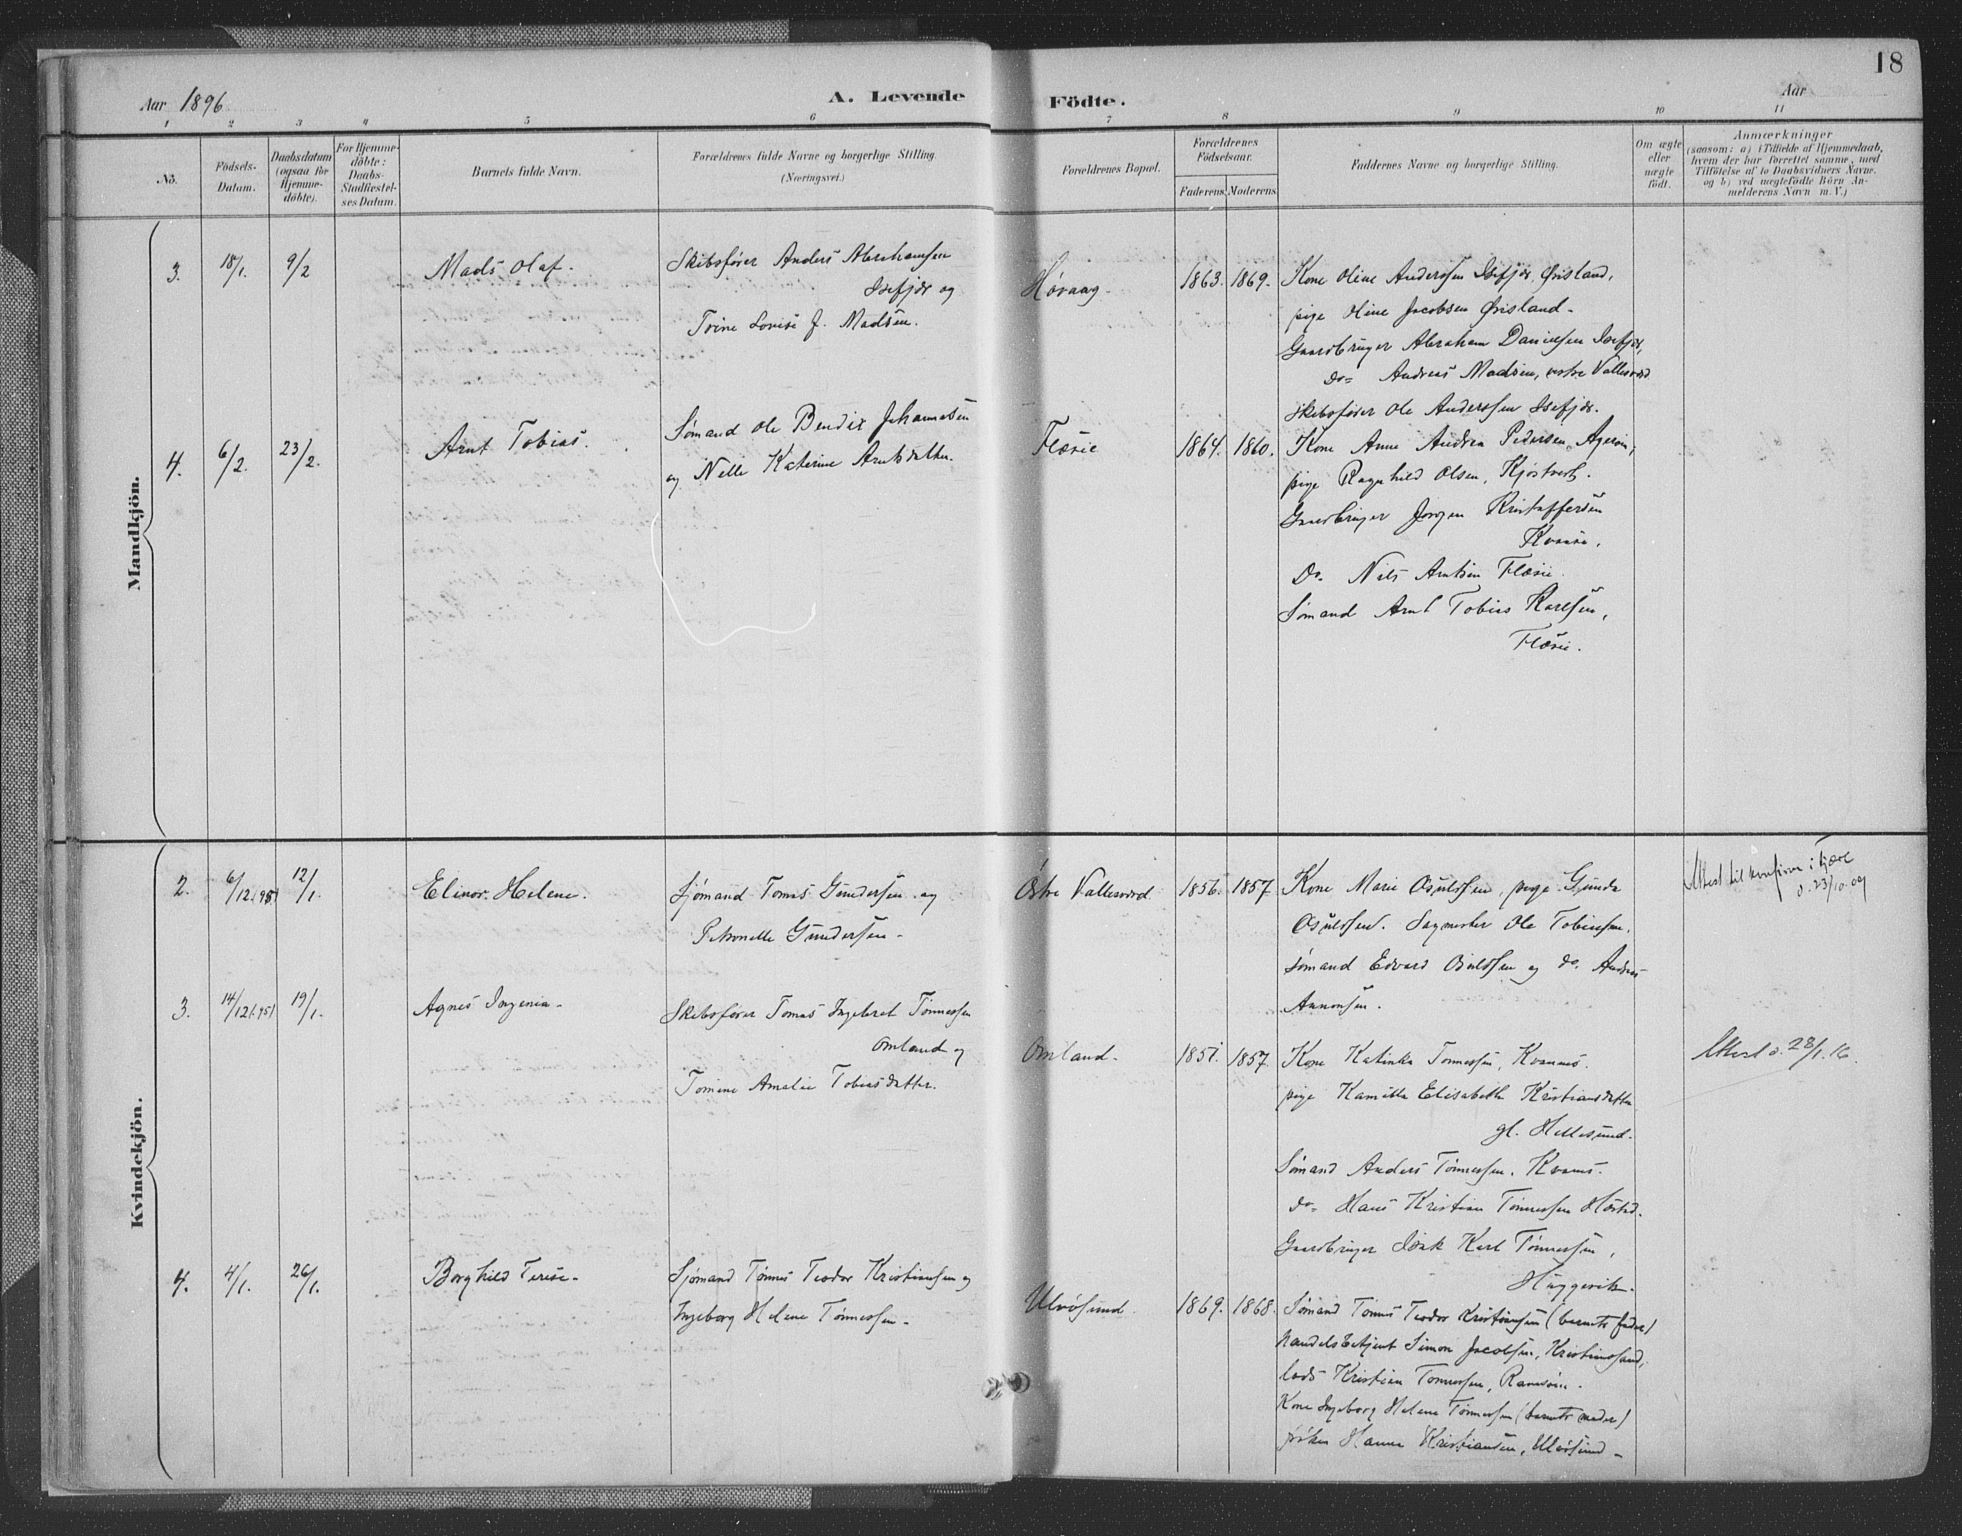 18
Aar 1896 A. Levende Födte. Aar
1 2 3 4 5 6 7 8 9 10 11
No.
Födsels-Datum.
Daabsdatum (ogsaa for Hjemme-döbte).
For Hjemme-döbte: Daabs-Stadfæstel-ses Datum.
Barnets fulde Navn.
Forældrenes fulde Navne og borgerlige Stilling
(Næringsvei.)
Forældrenes Bopæl.
Forældrenes Födselsaar.
Faderens. Moderens.
Faddernes Navne og borgerlige Stilling.
Om ægte eller uægte födt.
Anmærkninger
(saasom: a) i Tilfælde af Hjemmedaab,
hvem der har forrettet samme, med
Tilföielse af to Daabsvidners Navne.
og b) ved uægtefödte Börn An-
melderens Navn m. V.)
Mandkjön.
3. 18/1. 9/2 Mads Olaf.
Skibsfører Anders Abrahamsen
Isefjær og
Trine Lovise J. Madsen.
Høvaag. 1863. 1869.
Kone Oline Anderssen Isefjær, Ørisland,
pige Oline Jacobsen Ørisland.
Gaardbruger Abraham Danielsen Isefjær,
Do= Andreas Madsen, vestre Vallesværd
Skibsfører Ole Anderssen Isefjær.
4. 6/2. 23/2. Arnt Tobias.
Sømand Ole Bendix Johannesen
og Nille Katerine Arntsdatter.
Flørie 1864. 1860.
Kone Anne Andrea Pedersen, Agerøen,
pige Ragnhild Olsen, Kjøstvert.
Gaardbruger Jørgen Kristoffersen
Kvaase.
Do. Nils Arntsen Fløsie.
Sømand Arnt Tobias Karlsen,
Fløsie.
Kvindekjön.
2. 6/12(95) 12/1. Elinor Helene.
Sjømand Tomas Gundersen og
Petronelle Gundersen.
Østre Vallesværd. 1856. 1857
Kone Marie Osulssen, pige Gunda
Osulssen. Sagmester Ole Tobiassen.
Sømand Edvard Osulssen og do. Andreas
Aanonsen.
Attest til konfirm. i Fjære
d. 23/10.09
3. 14/12(95) 19/1. Agnes Ingenia.
Skibsfører Tomas Ingebret Tønnessen
Omland og
Tomine Amalie Tobiasdatter.
Omland. 1851. 1857.
Kone Katinka Tønnessen, Kvannes.
pige Kamilla Elisabeth Kristiansdatter
gl. Hellesund.
Sømand Anders Tønnessen. Kvannes.
do= Hans Kristian Tønnessen Hæstad.
Gaardbruger Isak Karl Tønnessen,
Hæggevik.
Attest d. 28/1.16.
4. 4/1. 26/1. Borghild Terese.
Sjømand Tønnes Teodor Kristiansen og
Ingeborg Helene Tønnessen.
Ulvøsund. 1869. 1868.
Sømand Tønnes Teodor Kristiansen (barnets fader)
Handelsbetjent Simon Jacobsen, Kristianssand,
lods Kristian Tønnessen, Ramsøen.
Kone Ingeborg Helene Tønnessen (barnets moder)
frøken Hanna Kristiansen, Ulvøsund.